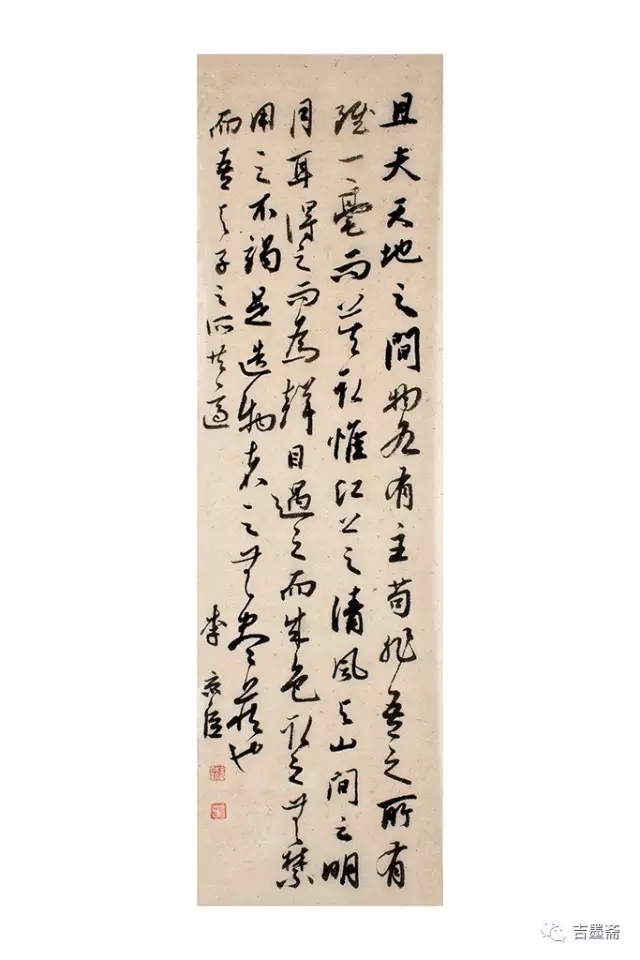 且夫天地之間物各有主苟非吾之所有
雖一毫而莫取惟江上之清風与山間之明
月耳得之而為聲目遇之而成色取之無禁
用之不竭是造物者之無盡藏也
而吾与子之所共適
李臣
吉墨斋